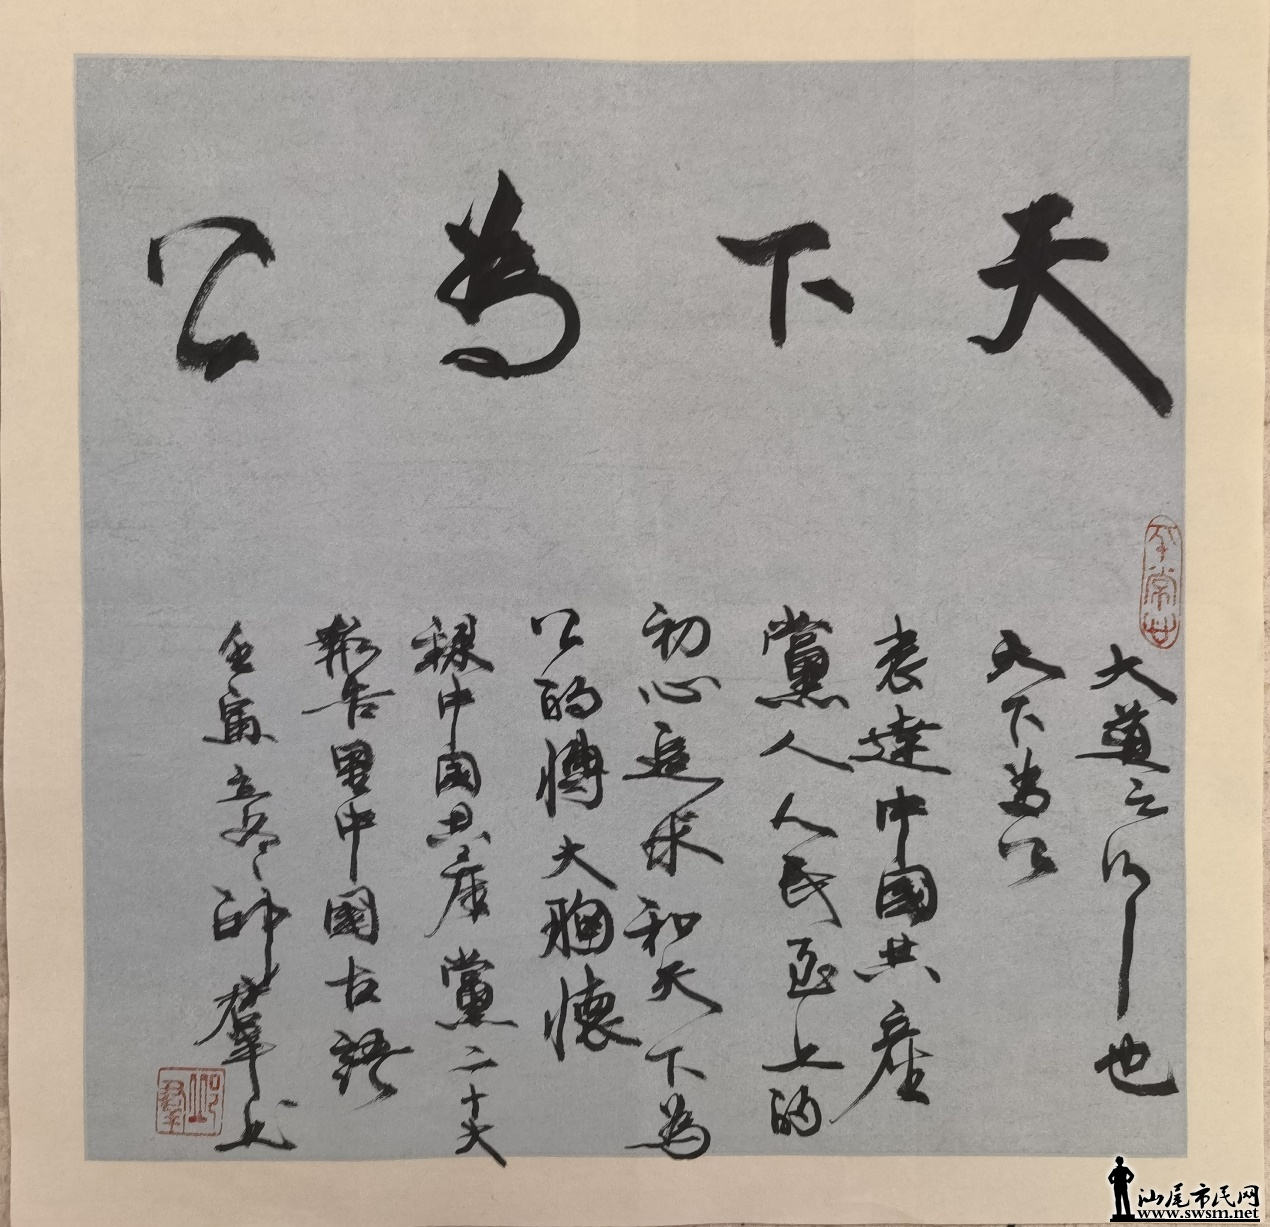 天下為公
大道之行也
天下為公
表達中國共產
黨人人民至上的
初心追求和天下為
公的博大胸懷
錄中国共產黨二十大
報告里中國古語
壬寅立冬 群书
汕尾市民网
www.swsm.net